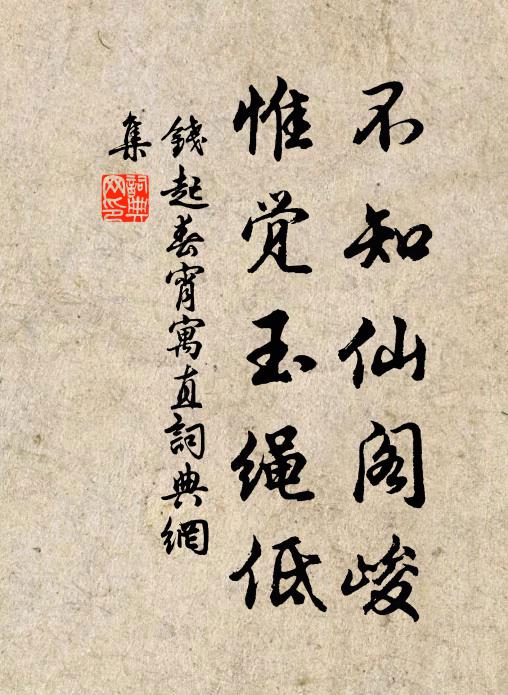 不知仙阁峻
惟觉玉绳低
錢起春宵寓直詞典網
集
詞典
网印